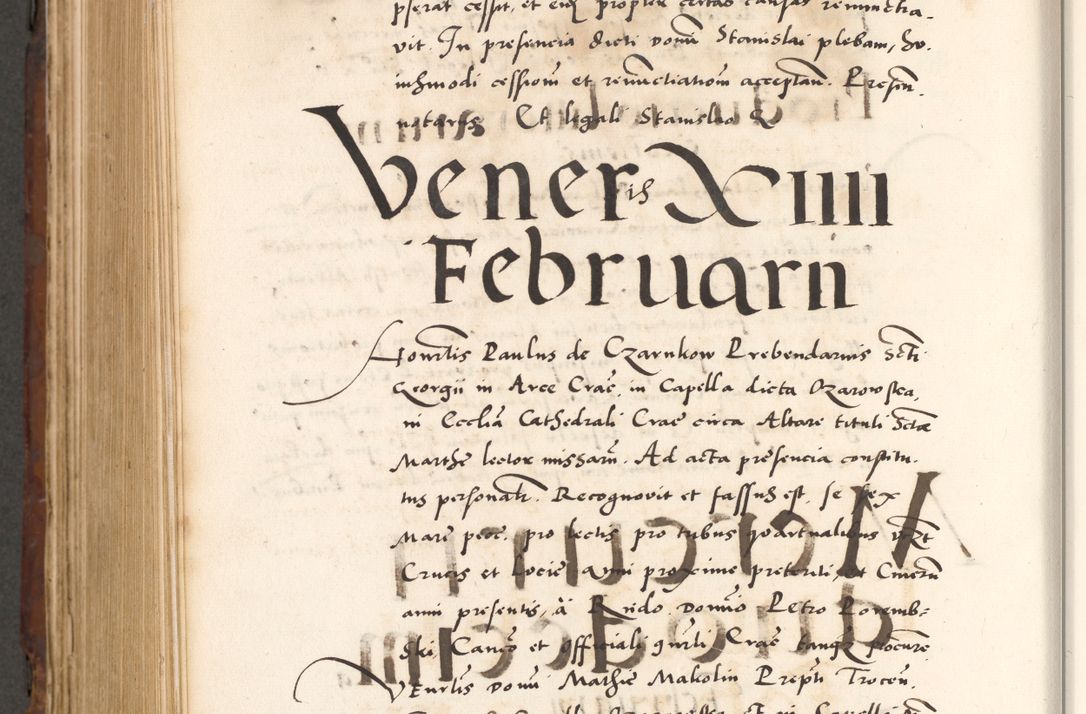 pserat cessit, et eius propter certas causas renunctia.
vit. In presencia dicti domini Stanislai plebani, hu.
iusmodi cessionem et renunctiationem acceptan. Presen.
notariis Et legali Stanislao
Veneris XIIII
Februarii
Honorabilis Paulus de Czarnkow Prebendarius Sancti
Georgii in Arce Crac. in Capella dicta Ozarowska,
in Ecclesia Cathedrali Crac circa Altare tituli Sanctae
Marthe lector missarum. Ad acta presencia constitu.
tus personaliter. Recognovit et fassus est, se sex
Marc pecc. pro lectis pro tribus quartualibus
Crucis et Lucie anni proxime preteriti, et Cinerum
anni presentis, à Rndo domino Petro Poremb-
ski Canco et officiali gnrli Crac tanq procure
Venrlis domi Mathie Makolin Prepti Trocen.